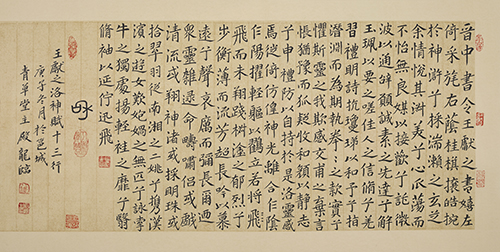 晋中書令王獻之書嬉左
倚采旄右蔭桂旗攘皓捥
於神滸兮採湍瀨之玄芝
余情悅其淑美兮心振蕩而
不怡無良媒以接歡兮託微
波以通辭願誠素之先達兮解
玉珮以要之嗟佳人之信脩兮羌
習禮明詩抗瓊珶以和予兮指
潛淵而為期執拳拳之款實兮
懼斯靈之我欺感交甫之棄言
悵猶豫而狐疑收和顏以靜志
兮申禮防以自持於是洛靈感
焉徙倚仿偟神光離合乍陰
乍陽擢輕軀以鶴立若將飛
而未翔踐椒塗之郁烈兮
步衡薄而流芳超長吟以慕
遠兮聲哀厲而彌長爾迺
衆靈雜遝命疇嘯侶或戲
清流或翔神渚或採明珠或
拾翠羽從南湘之二姚兮攜漢
濱之遊女歎炮媧之無匹兮詠牽
牛之獨處揚輕袿之靡兮翳
脩袖以延佇迅飛
王獻之洛神賦十三行
庚子冬月於邑城
青草堂主殿龍臨